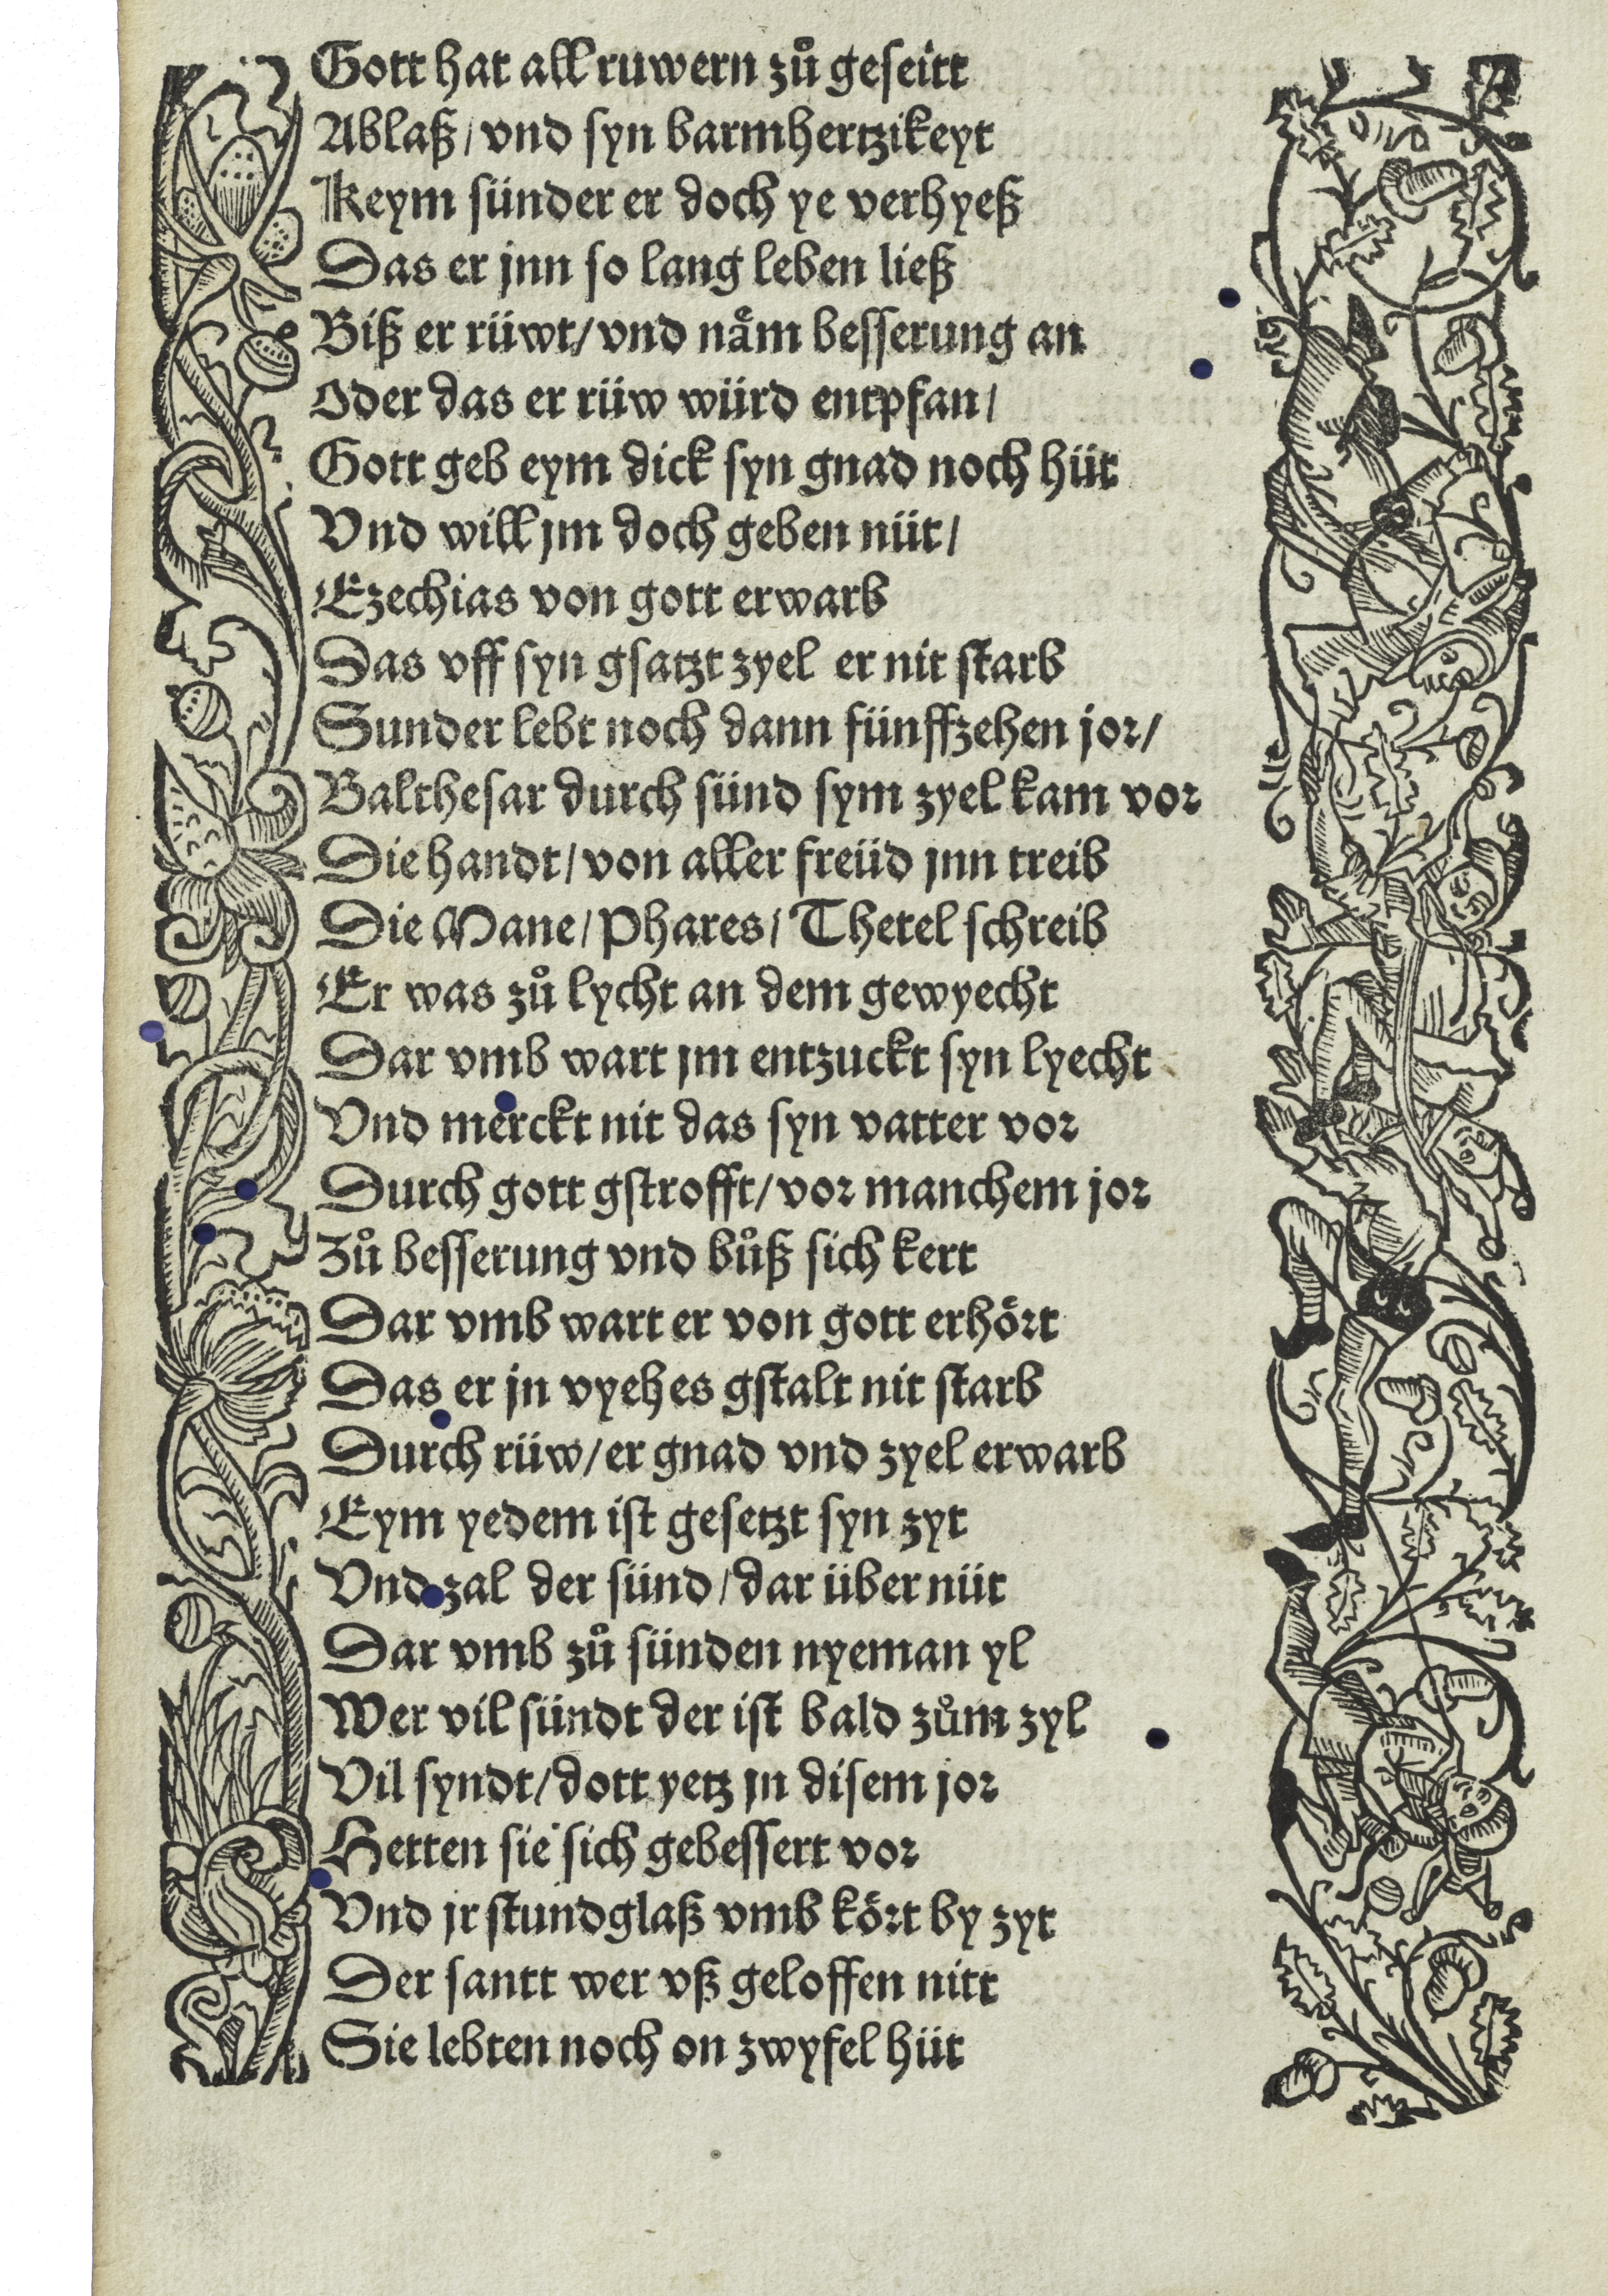 Gott hat all ruwern zuͦ geseitt
Ablaß / vnd syn barmhertzikeyt
Keym sünder er doch ye verhyeß
Das er jnn so lang leben ließ
Biß er rüwt / vnd naͤm besserung an
Oder das er rüw würd entpfan /
Gott geb eym dick syn gnad noch hüt
Vnd will jm doch geben nüt /
Ezechias von gott erwarb
Das vff syn gsatzt zyel er nit starb
Sunder lebt noch dann fünffzehen jor /
Balthesar durch sünd sym zyel kam vor
Die handt / von aller freüd jnn treib
Die Mane / Phares / Thetel schreib
Er was zuͦ lycht an dem gewyecht
Dar vmb wart jm entzuckt syn lyecht
Vnd merckt nit das syn vatter vor
Durch gott gstrofft / vor manchem jor
Zuͦ besserung vnd buͦß sich kert
Dar vmb wart er von gott erhoͤrt
Das er jn vyehes gstalt nit starb
Durch rüw / er gnad vnd zyel erwarb
Eym yedem ist gesetzt syn zyt
Vnd zal der sünd / dar über nüt
Dar vmb zuͦ sünden nyeman yl
Wer vil sündt der ist bald zuͦm zyl
Vil syndt / dott yetz jn disem jor
Hetten sie sich gebessert vor
Vnd jr stundglaß vmb koͤrt by zyt
Der santt wer vß geloffen nitt
Sie lebten noch on zwyfel hüt